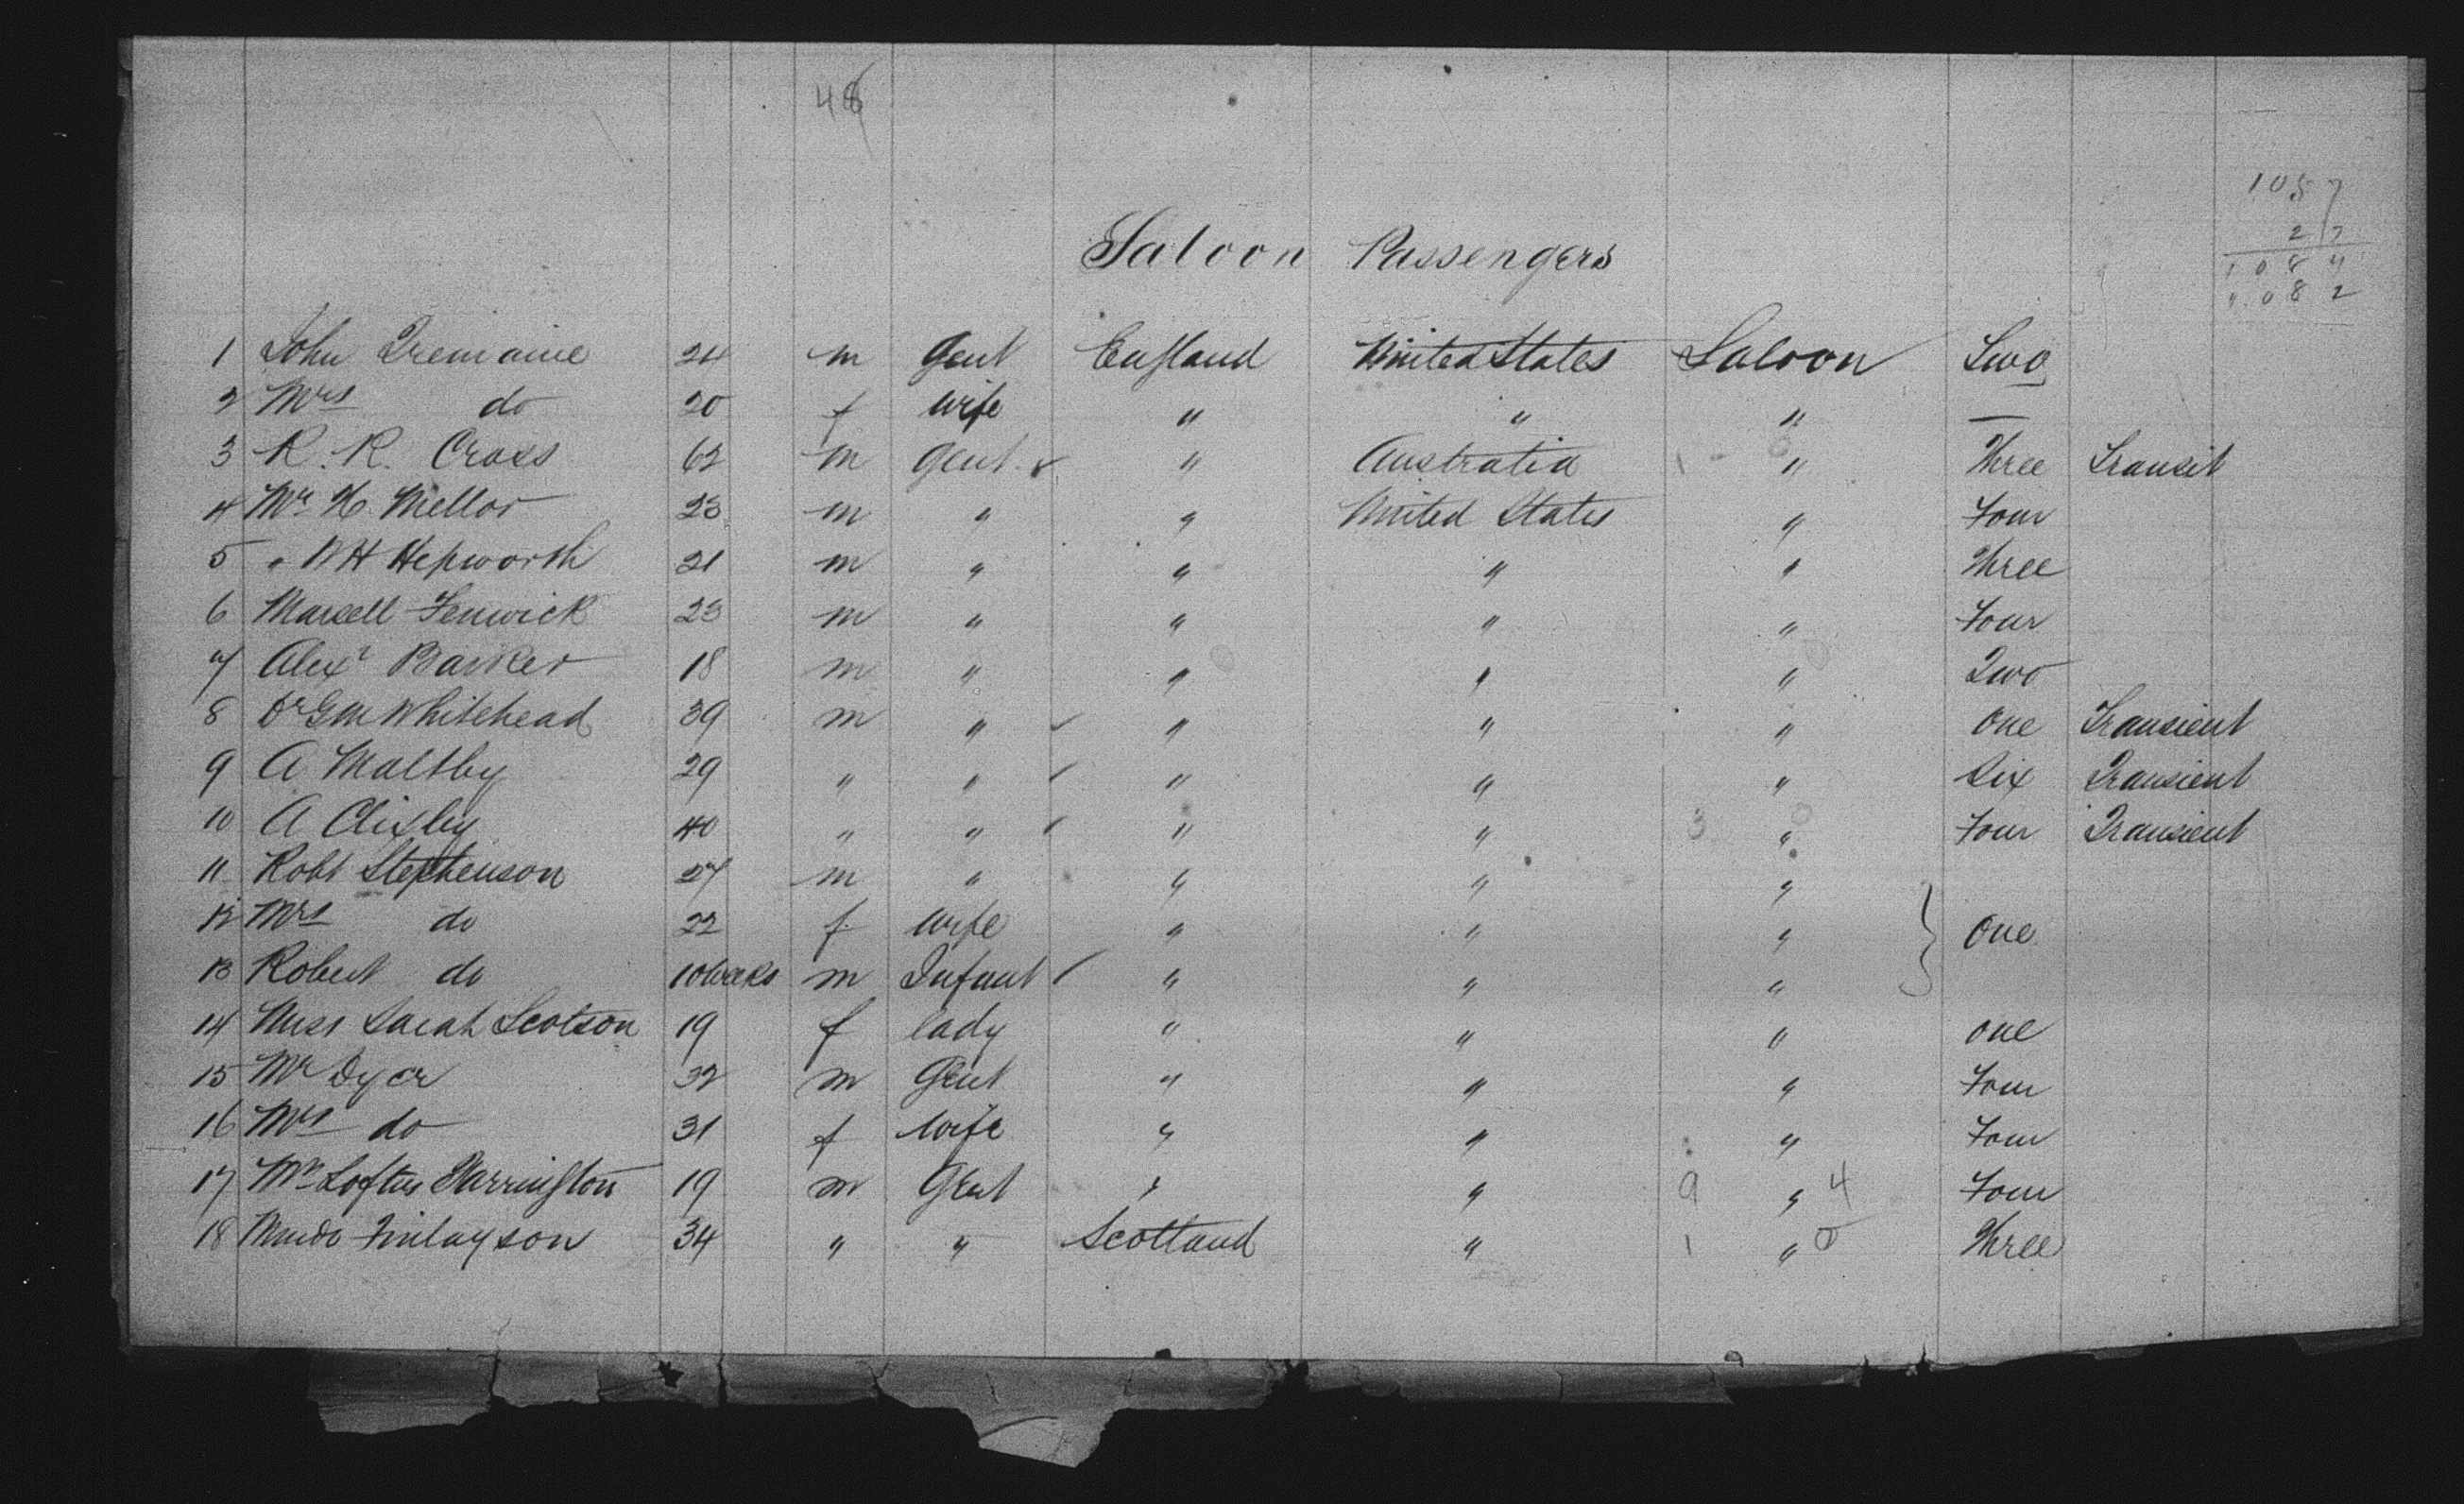 48
1087
27
1084
1082
Saloon Passengers
1 John Tremaine 24 m Gent England United States Saloon Two
2 Mrs do 20 f wife " " " —
3 R. R. Cross 62 m Gent " Australia " Three Transit
4 Mr H. Mellor 23 m " " United States " Four
5 " W H Hepworth 21 m " " " " Three
6 Marsell Fenwick 23 m " " " " Four
7 Alexr Barker 18 m " " " " Two
8 Dr G M Whitehead 39 m " " " " One Transient
9 A Maltby 29 " " " " " Six Transient
10 A Clixby 40 " " " " 3 " Four Transient
11 Robt Stephenson 27 m " " " "
12 Mrs do 22 f wife " " " One
13 Robert do 10 weeks m Infant " " "
14 Miss Sarah Scotson 19 f lady " " " One
15 Mr Dyer 32 m Gent " " " Four
16 Mrs do 31 f wife " " " Four
17 Mr Loftus Harrington 19 m Gent " " 9 " 4 Four
18 Murdo Finlayson 34 " " Scotland " 1 " 0 Three